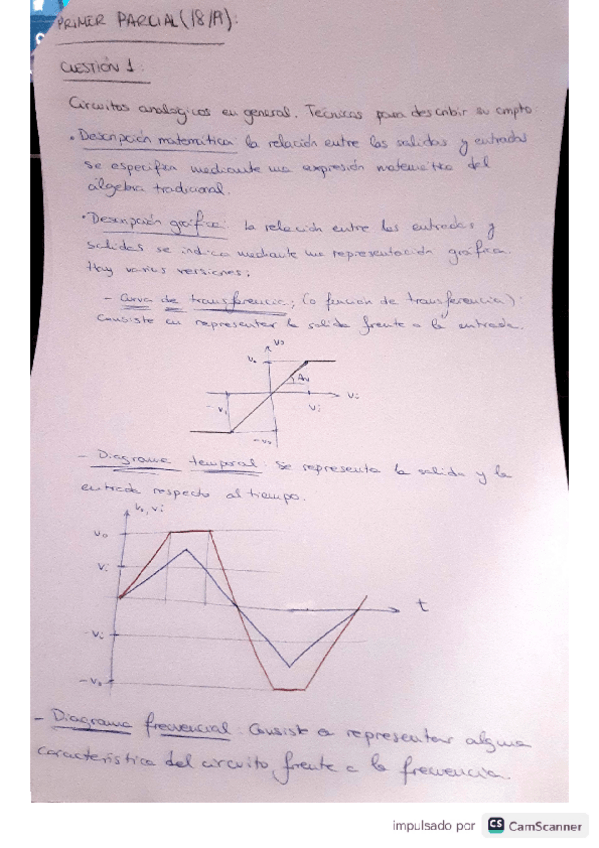 PRIMER PARCIAL (18/19):
CUESTIÓN 1:
Circuitos analógicos en general. Técnicas para describir su cmpto.
• Descripción matemática: la relación entre las salidas y entradas
se especifica mediante una expresión matemática del
álgebra tradicional.
• Descripción gráfica: la relación entre las entradas y
salidas se indica mediante una representación gráfica.
Hay varias versiones:
- Curva de transferencia; (o función de transferencia):
Consiste en representar la salida frente a la entrada.
Vo
Vo
Av
Vi
-Vi
Vi
-Vo
- Diagrama temporal: se representa la salida y la
entrada respecto al tiempo.
Vo, Vi
Vo
Vi
t
-Vi
-Vo
- Diagrama frecuencial: Consiste en representar alguna
característica del circuito frente a la frecuencia.
impulsado por CS CamScanner